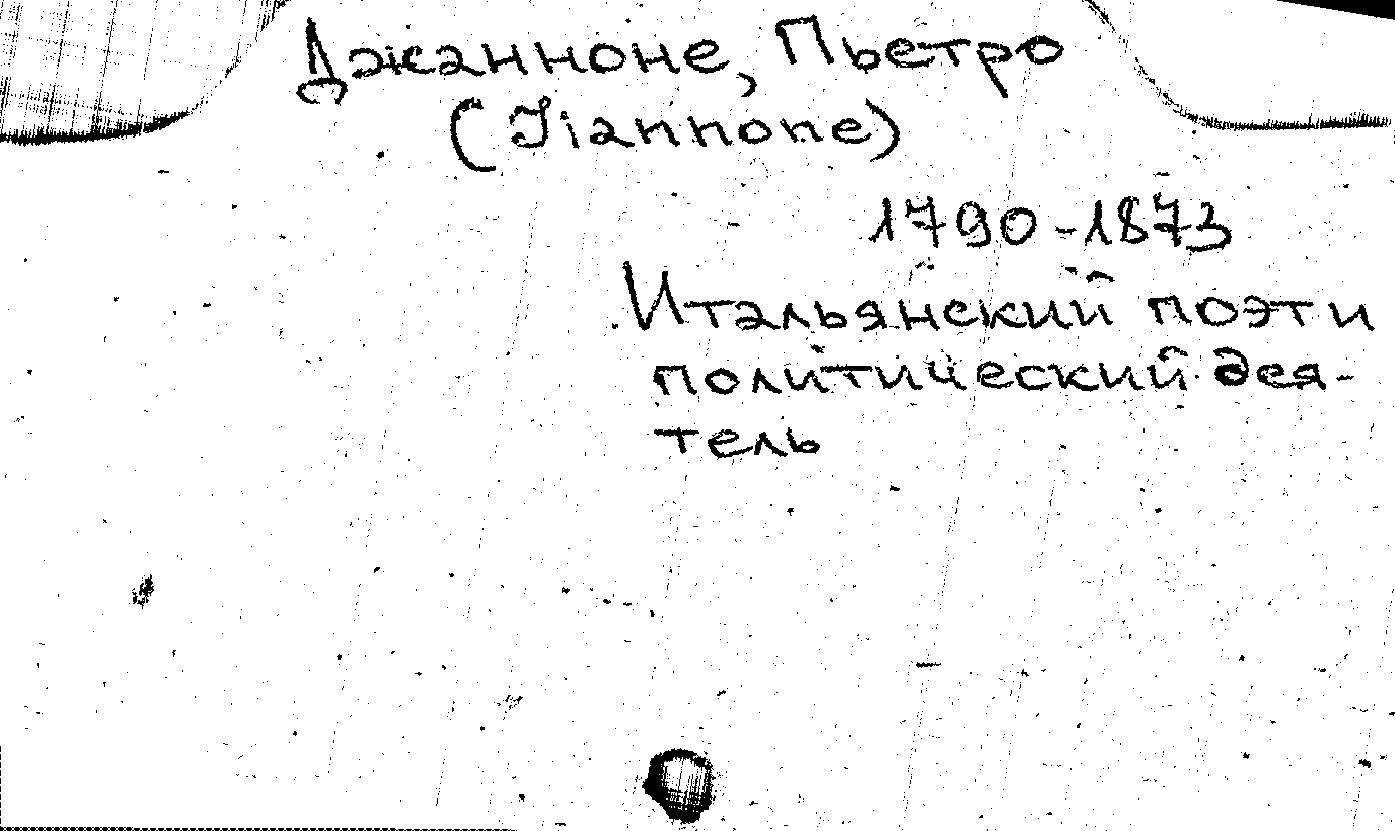 Джанноне, Пьетро
(Jiannone)
1790-1873
Итальянский поэт и
политический дея-
тель